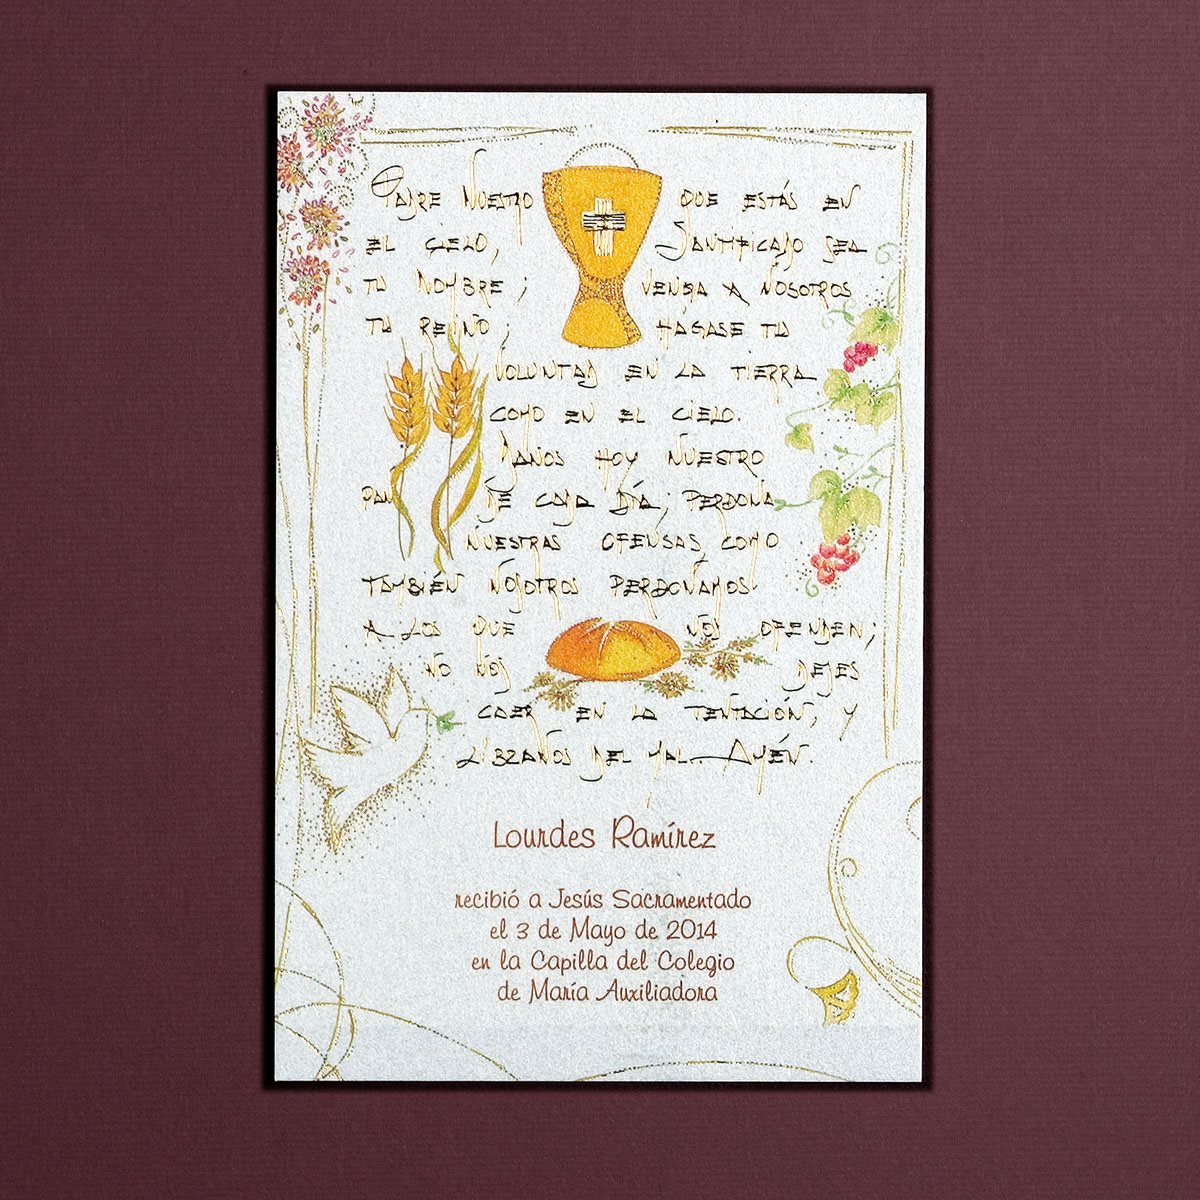 Padre Nuestro que estás en
el cielo, Santificado sea
tu Nombre; venga a nosotros
tu reino; hágase tu
voluntad en la tierra
como en el cielo.
Danos hoy nuestro
pan de cada día; perdona
nuestras ofensas, como
también nosotros perdonamos
a los que nos ofenden;
no nos dejes
caer en la tentación, y
líbranos del mal. Amén.
Lourdes Ramírez
recibió a Jesús Sacramentado
el 3 de Mayo de 2014
en la Capilla del Colegio
de María Auxiliadora